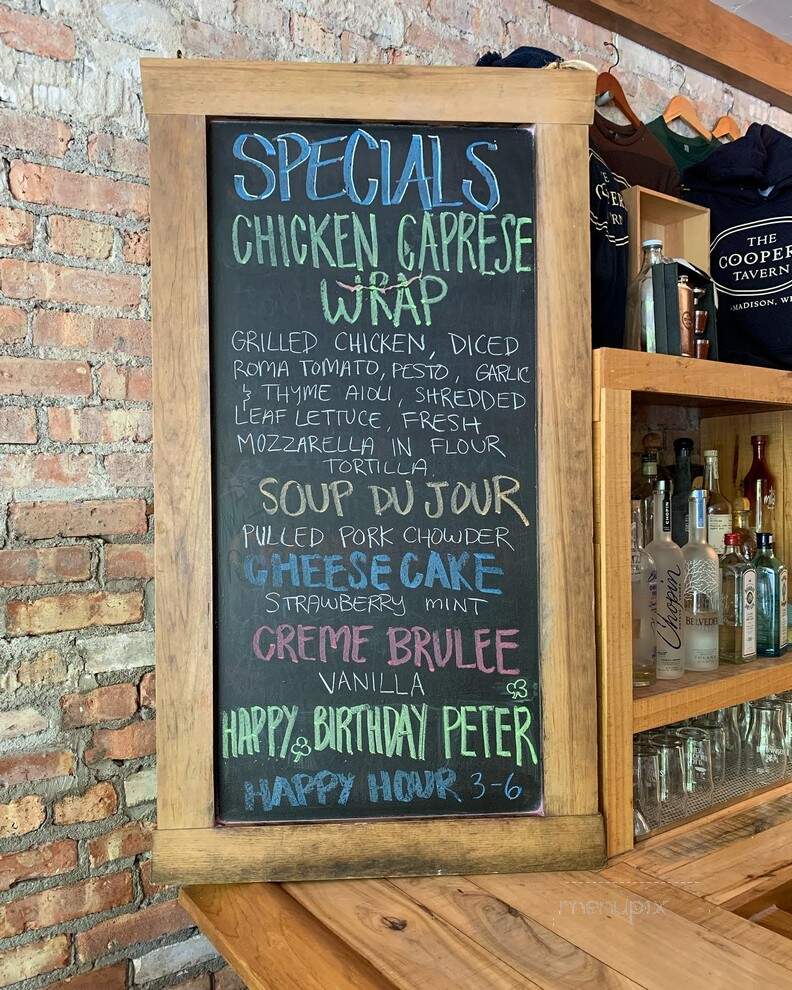 SPECIALS
CHICKEN CAPRESE
WRAP
GRILLED CHICKEN, DICED
ROMA TOMATO, PESTO, GARLIC
& THYME AIOLI, SHREDDED
LEAF LETTUCE, FRESH
MOZZARELLA IN FLOUR
TORTILLA.
SOUP DU JOUR
PULLED PORK CHOWDER
CHEESECAKE
STRAWBERRY MINT
CREME BRULEE
VANILLA
HAPPY BIRTHDAY PETER
HAPPY HOUR 3-6
THE
COOPER
TAVERN
MADISON, WI
CHOPIN
Chopin
BELVEDERE
menupix